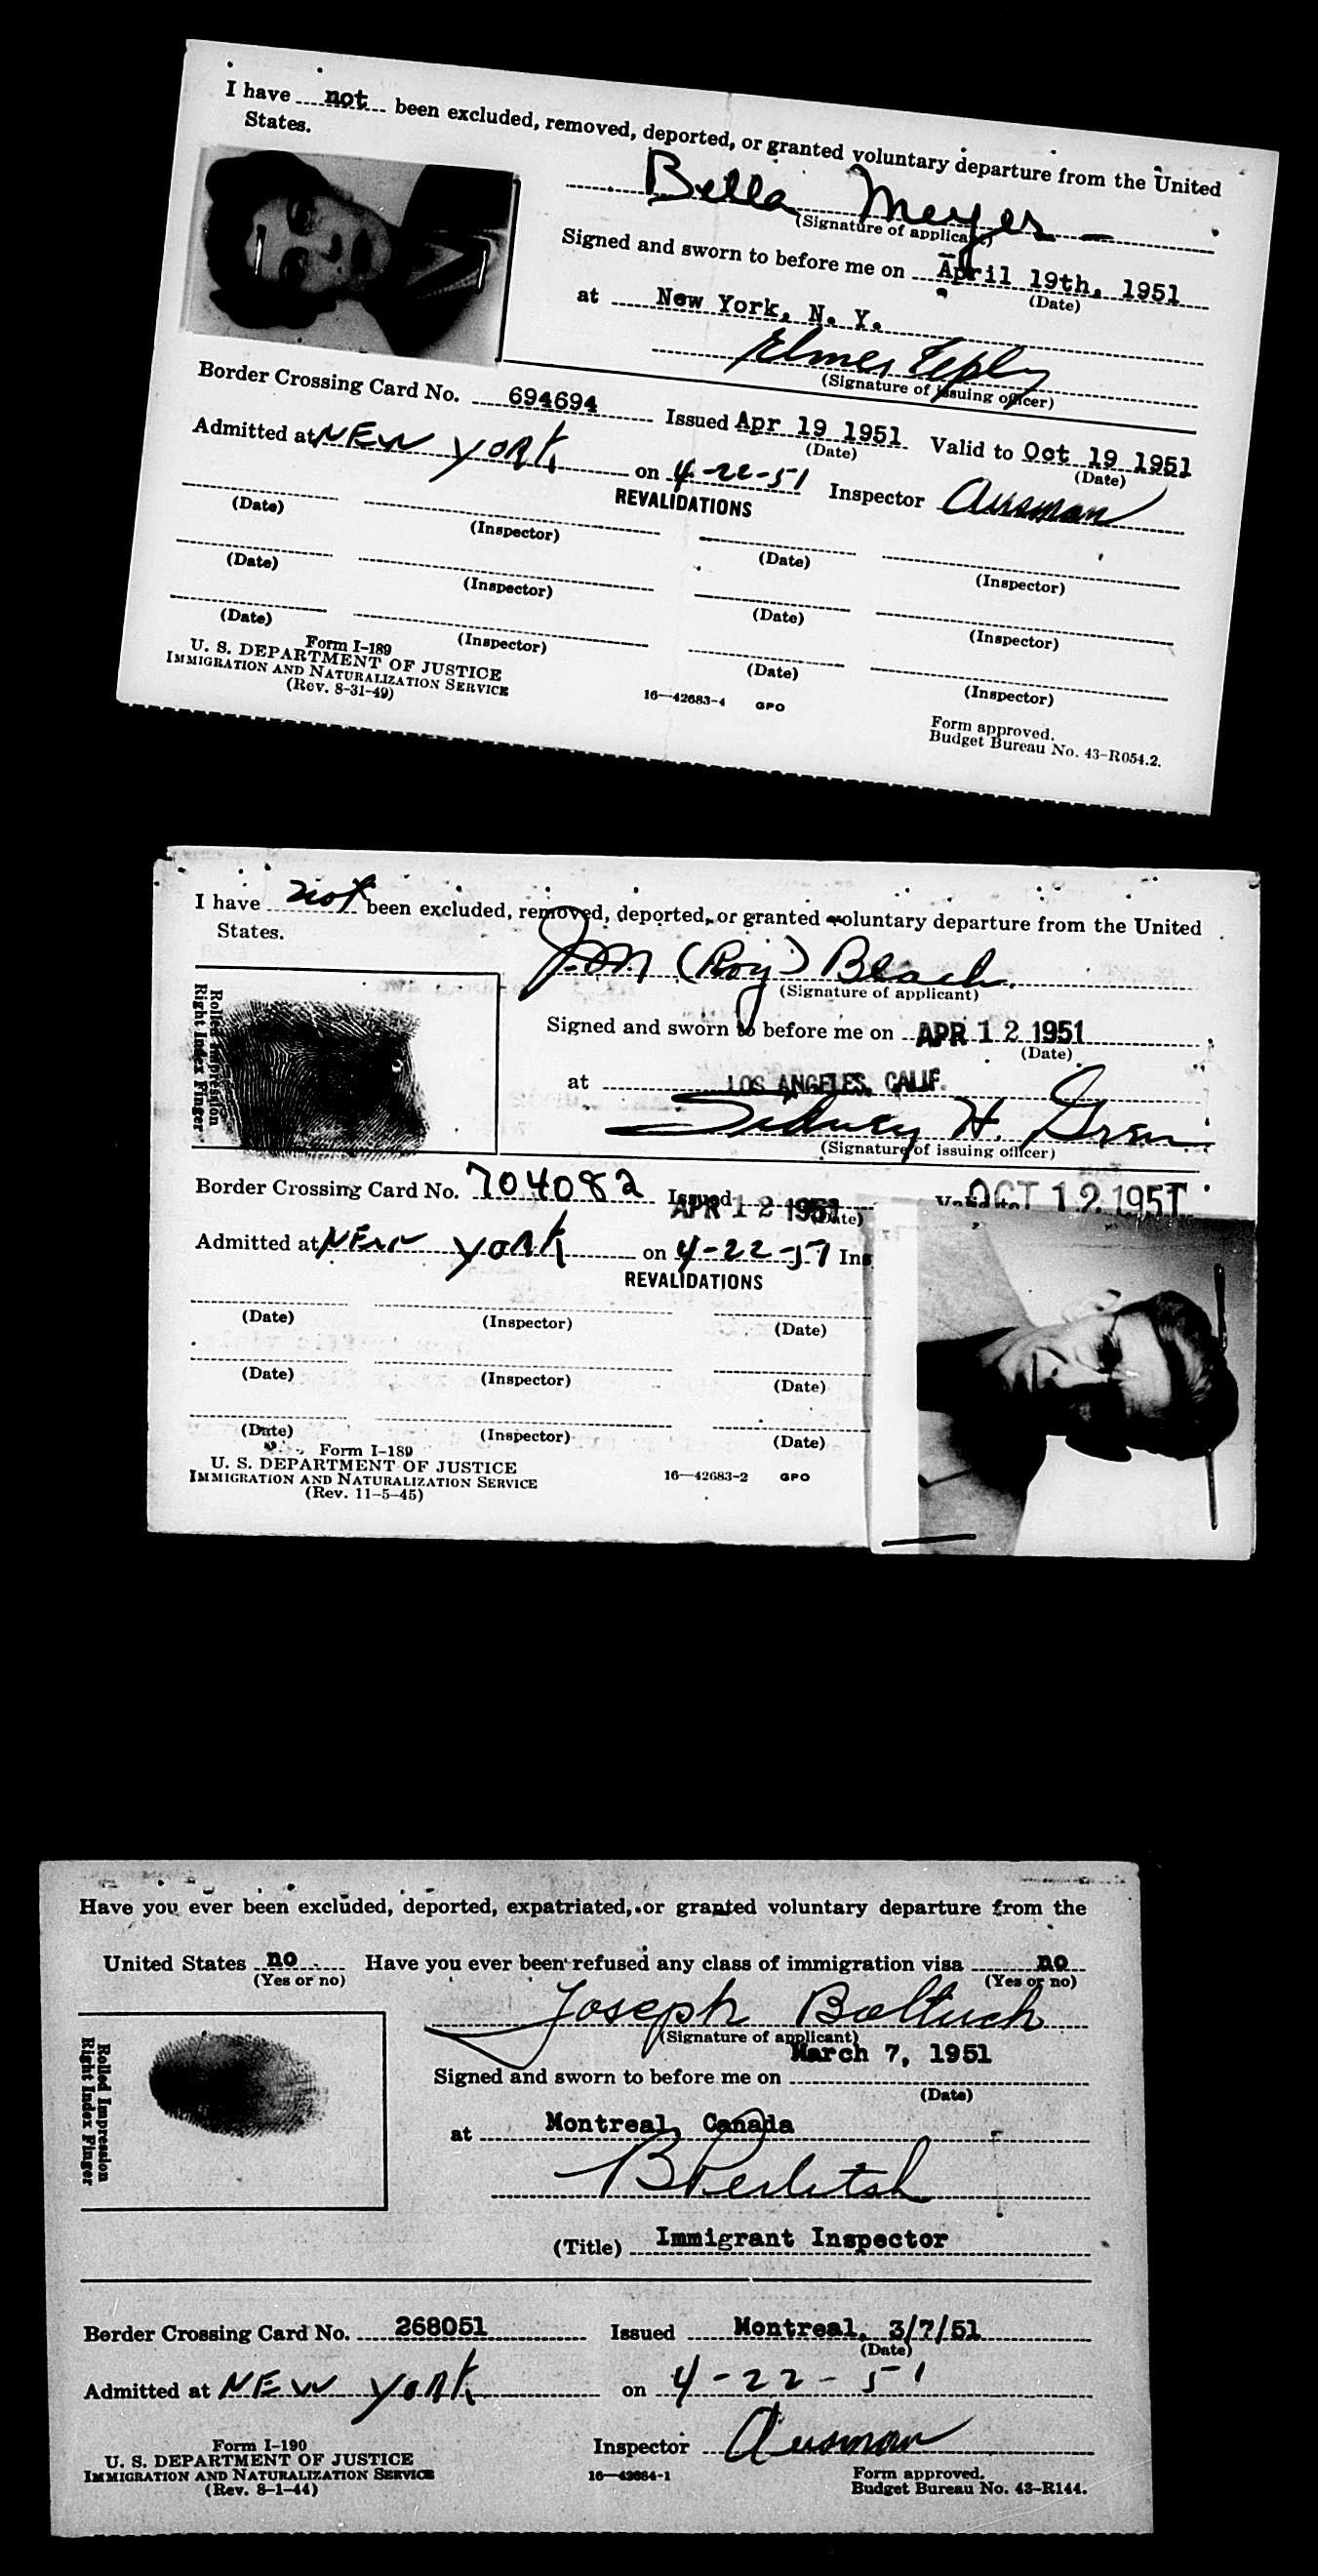 I have not been excluded, removed, deported, or granted voluntary departure from the United
States.
Bella Meyes
(Signature of applicant)
Signed and sworn to before me on April 19th, 1951
(Date)
at New York, N. Y.
Elmer Teply
(Signature of issuing officer)
Border Crossing Card No. 694694 Issued Apr 19 1951 Valid to Oct 19 1951
(Date) (Date)
Admitted at NEW YORK on 4-22-51 Inspector Ausman
REVALIDATIONS
(Date) (Inspector) (Date) (Inspector)
(Date) (Inspector) (Date) (Inspector)
(Date) (Inspector) (Date) (Inspector)
Form I-189
U. S. DEPARTMENT OF JUSTICE
IMMIGRATION AND NATURALIZATION SERVICE
(Rev. 8-31-49)
16—42683-4 GPO
Form approved.
Budget Bureau No. 43-R054.2.
I have not been excluded, removed, deported, or granted voluntary departure from the United
States.
Rolled Impression
Right Index Finger
J.M (Roy) Beach.
(Signature of applicant)
Signed and sworn to before me on APR 12 1951
(Date)
at LOS ANGELES, CALIF.
Sidney H.
(Signature of issuing officer)
Border Crossing Card No. 704082 Issued APR 12 1951 Valid to OCT 12 1951
(Date)
Admitted at NEW YORK on 4-22-51 Ins
REVALIDATIONS
(Date) (Inspector) (Date)
(Date) (Inspector) (Date)
(Date) (Inspector) (Date)
Form I-189
U. S. DEPARTMENT OF JUSTICE
IMMIGRATION AND NATURALIZATION SERVICE
(Rev. 11-5-45)
16—42683-2 GPO
Have you ever been excluded, deported, expatriated, or granted voluntary departure from the
United States no Have you ever been refused any class of immigration visa no
(Yes or no) (Yes or no)
Rolled Impression
Right Index Finger
Joseph Baltuch
(Signature of applicant)
March 7, 1951
Signed and sworn to before me on
(Date)
at Montreal, Canada
(Title) Immigrant Inspector
Border Crossing Card No. 268051 Issued Montreal, 3/7/51
(Date)
Admitted at NEW YORK on 4-22-51
Inspector Ausman
Form I-190
U. S. DEPARTMENT OF JUSTICE
IMMIGRATION AND NATURALIZATION SERVICE
(Rev. 8-1-44)
16—42684-1
Form approved.
Budget Bureau No. 43-R144.